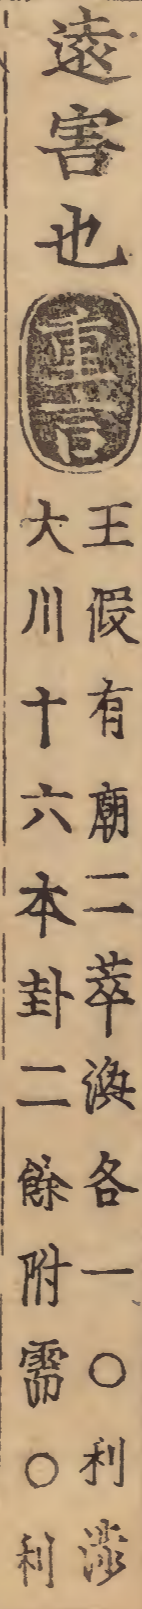 逺害也
重言
王假有廟二萃渙各一○利涉
大川十六本卦二餘附需○利